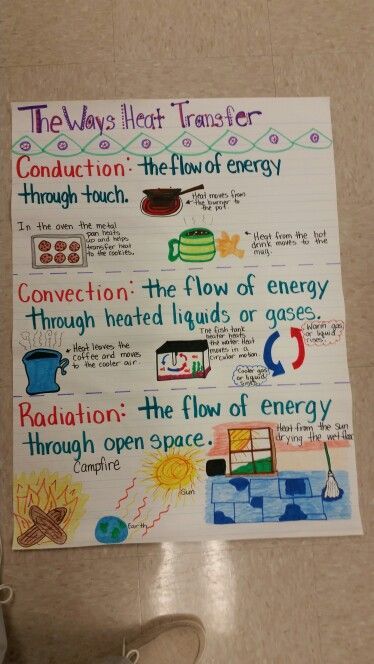 The Ways Heat Transfer
Conduction: the flow of energy
through touch.
Heat moves from
the burner to
the pot.
In the oven the metal
pan heats
up and helps
transfer heat
to the cookies.
Heat from the hot
drink moves to the
mug.
Convection: the flow of energy
Through heated liquids or gases.
Heat leaves the
coffee and moves
to the cooler air.
The fish tank
heater heats
the water. Heat
moves in a
circular motion.
Warm gas
or liquid
rises.
Cooler gas
or liquid
sinks.
Radiation: the flow of energy
through open space.
Campfire
Sun
Earth
Heat from the sun
drying the wet floor